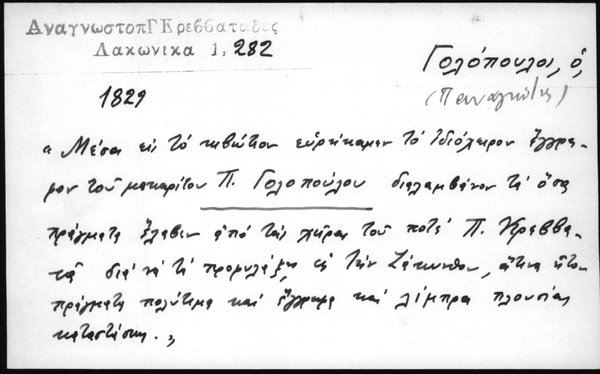 ΑναγνωστοπΓΚρεββαταδες
Λακωνικα 1, 282
Γολόπουλος, ὁ,
(Παναγιώτης)
1829
" Μέσα εἰς τὸ κιβώτιον εὑρήκαμεν τὸ ἰδιόχειρον ἔγγρα-
φον τοῦ μακαρίτου Π. Γολοπούλου διαλαμβάνον τὰ ὅσα
πράγματα ἔλαβεν ἀπὸ τὰς χεῖρας τοῦ ποτὲ Π. Κρεββα-
τᾶ διὰ νὰ τὰ προφυλάξῃ εἰς τὴν Ζάκυνθον, ἅτινα ἦτον
πράγματα πολύτιμα καὶ ἔγγραφα καὶ λίμπρα πλουσίας
καταστάσεως. "